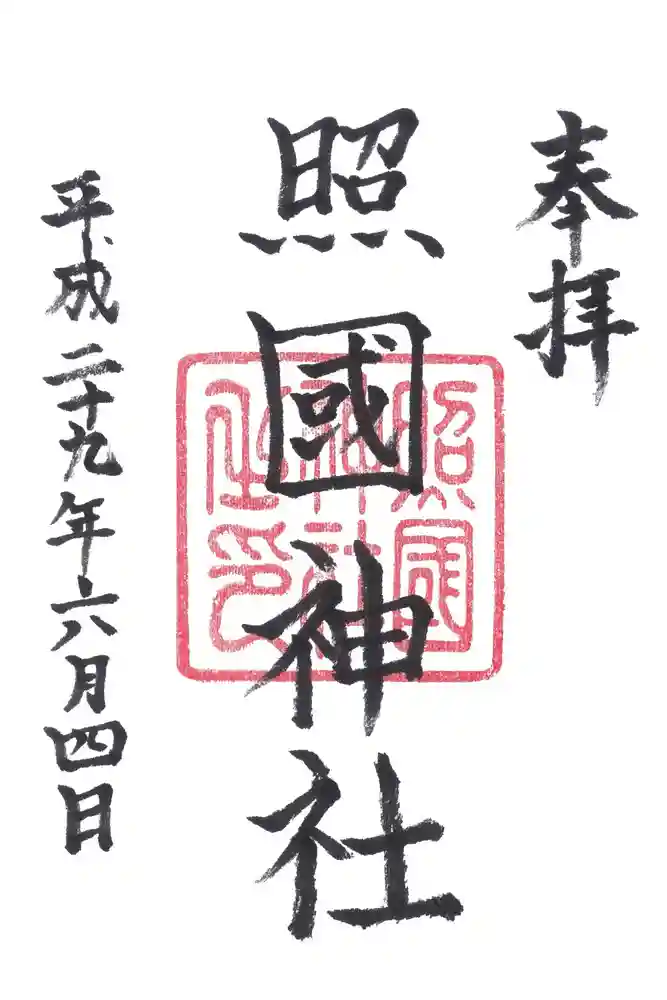 奉拝
照國神社
照國
神社
之印
平成二十九年六月四日